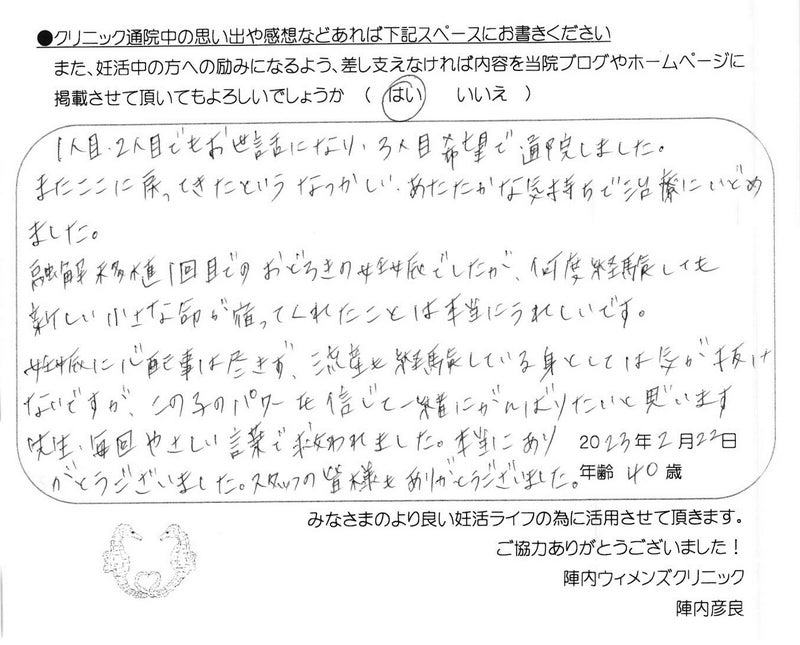 ●クリニック通院中の思い出や感想などあれば下記スペースにお書きください
また、妊活中の方への励みになるよう、差し支えなければ内容を当院ブログやホームページに
掲載させて頂いてもよろしいでしょうか （ はい いいえ ）
1人目・2人目でもお世話になり、3人目希望で通院しました。
またここに戻ってきたというなつかしい、あたたかな気持ちで治療にいどめ
ました。
融解移植1回目でのおどろきの妊娠でしたが、何度経験しても
新しい小さな命が宿ってくれたことは本当にうれしいです。
妊娠に心配事は尽きず、流産も経験している身としては気が抜け
ないですが、この子のパワーを信じて一緒にがんばりたいと思います
先生、毎回やさしい言葉で救われました。本当にあり
がとうございました。スタッフの皆様もありがとうございました。
2023年2月22日
年齢 40歳
みなさまのより良い妊活ライフの為に活用させて頂きます。
ご協力ありがとうございました！
陣内ウィメンズクリニック
陣内彦良